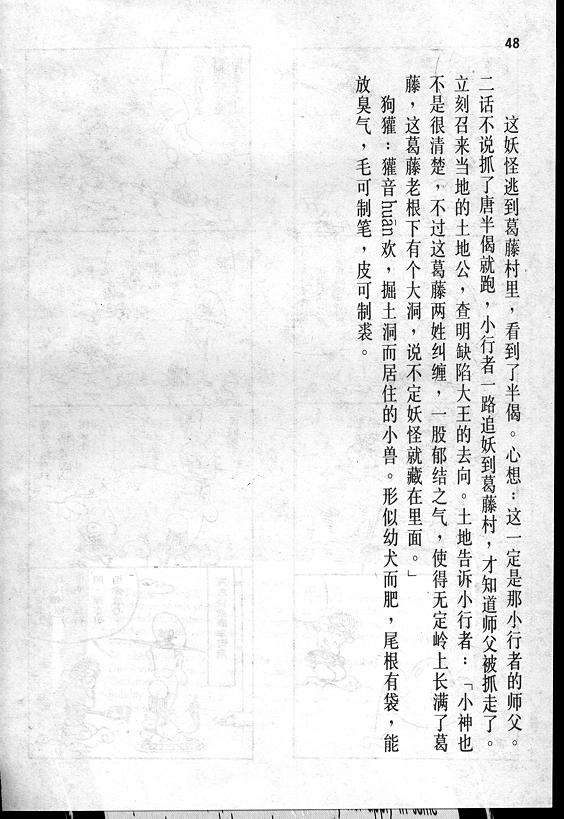 48
这妖怪逃到葛藤村里，看到了半偈。心想：这一定是那小行者的师父。
二话不说抓了唐半偈就跑，小行者一路追妖到葛藤村，才知道师父被抓走了。
立刻召来当地的土地公，查明缺陷大王的去向。土地告诉小行者：「小神也
不是很清楚，不过这葛藤两姓纠缠，一股郁结之气，使得无定岭上长满了葛
藤，这葛藤老根下有个大洞，说不定妖怪就藏在里面。」
狗獾：獾音huān欢，掘土洞而居住的小兽。形似幼犬而肥，尾根有袋，能
放臭气，毛可制笔，皮可制裘。